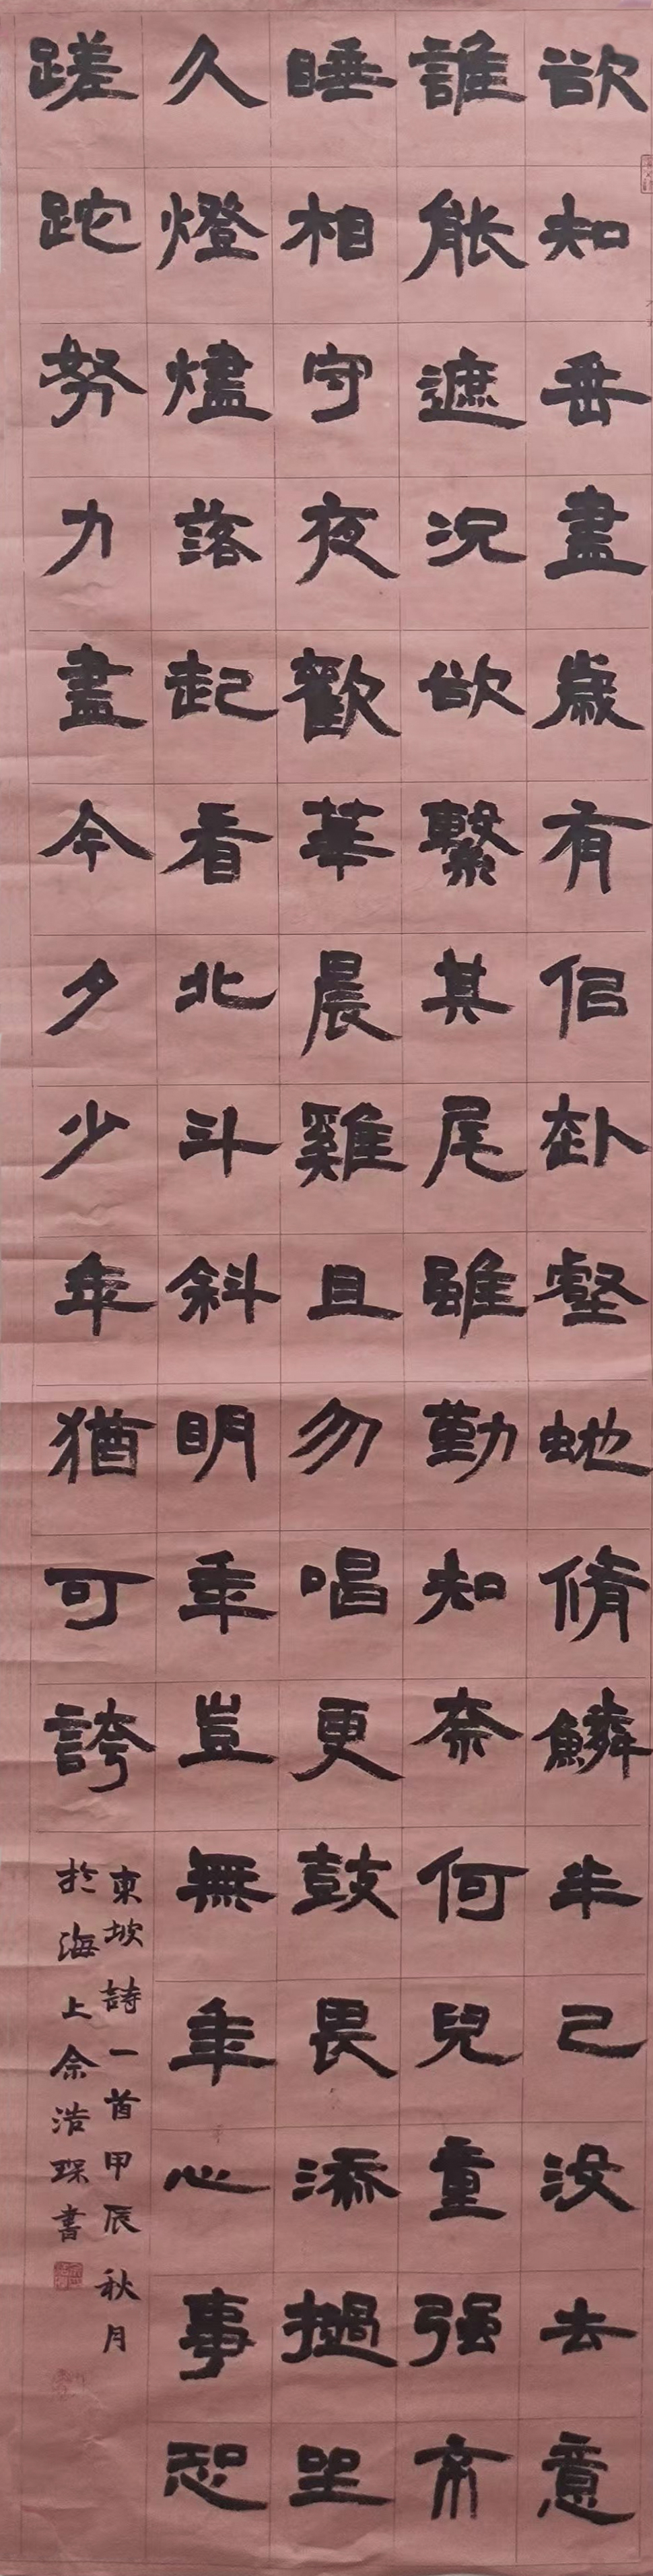 欲知垂盡歲有佀赴壑虵脩鱗半已没去意
誰能遮況欲繫其尾雖勤知奈何兒重强不
睡相守夜歡華晨雞且勿唱更鼓畏添撾坐
久燈燼落起看北斗斜明年豈無年心事恐
蹉跎努力盡今夕少年猶可誇
東坡詩一首甲辰秋月
於海上余浩琛書